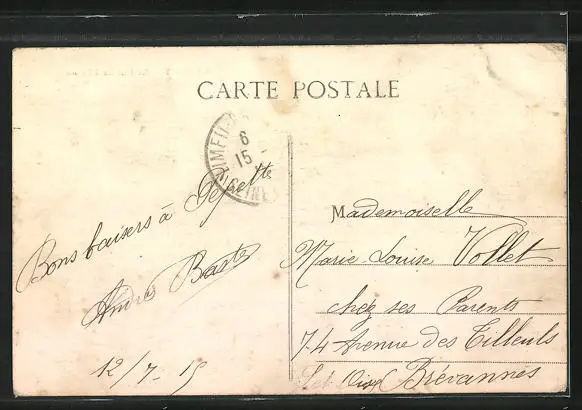 CARTE POSTALE
6
15
Bons baisers à Pépette
André
12/7-15
Mademoiselle
Marie-Louise Vollet
chez ses Parents
74 Avenue des Tilleuls
Brévannes